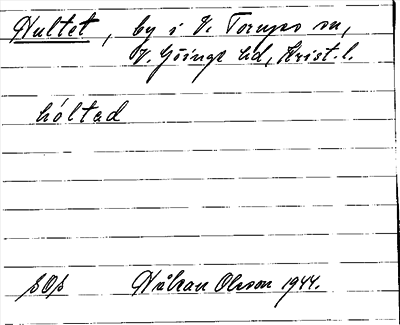 Hultet, by i V. Torups sn,
V. Göinge hd, Krist. l.
hóltad
Håkan Olsson 1944.